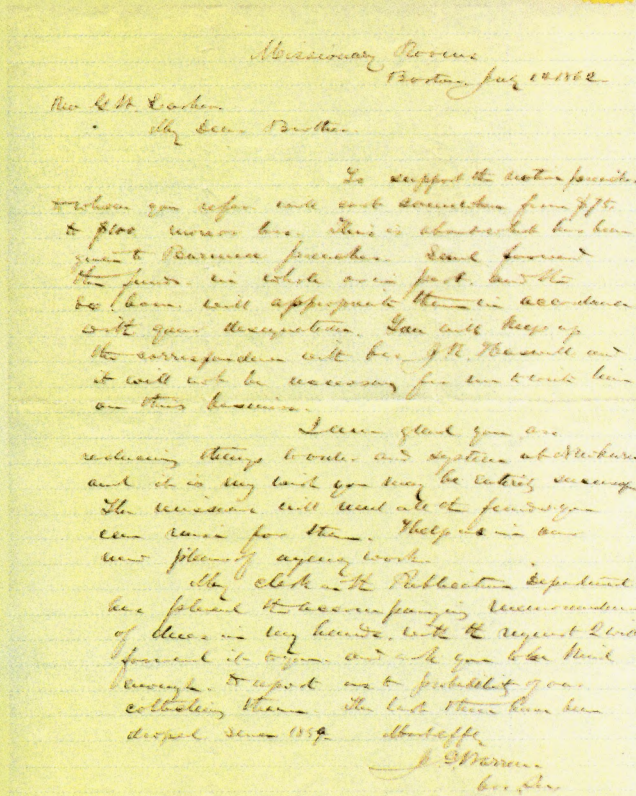 Missionary Rooms
Boston July 12 1862
Rev G. W.
My Dear Brother.
To support the native preacher
to whom you refer will cost somewhere from $75
to $100 more or less. This is about what has been
given to Burman preachers. Send forward
the funds, in whole or in part, and the
Ex. Com. will appropriate them in accordance
with your designation. You will keep up
the correspondence with bro J. R. Haswell and
it will not be necessary for me to write him
on this business.
I am glad you are
reducing things to order and system
and it is my wish you may be entirely
The missions will need all the funds you
can raise for them. Help us in our
new plan of agency work.
My clerk in the Publication Department
has placed the accompanying memorandum
of dues in my hands, with the request I will
forward it to you, and ask you to be kind
enough to report as to probability of our
collecting them. The last three have been
droped since 1859.
J. G. Warren
Cor. Sec